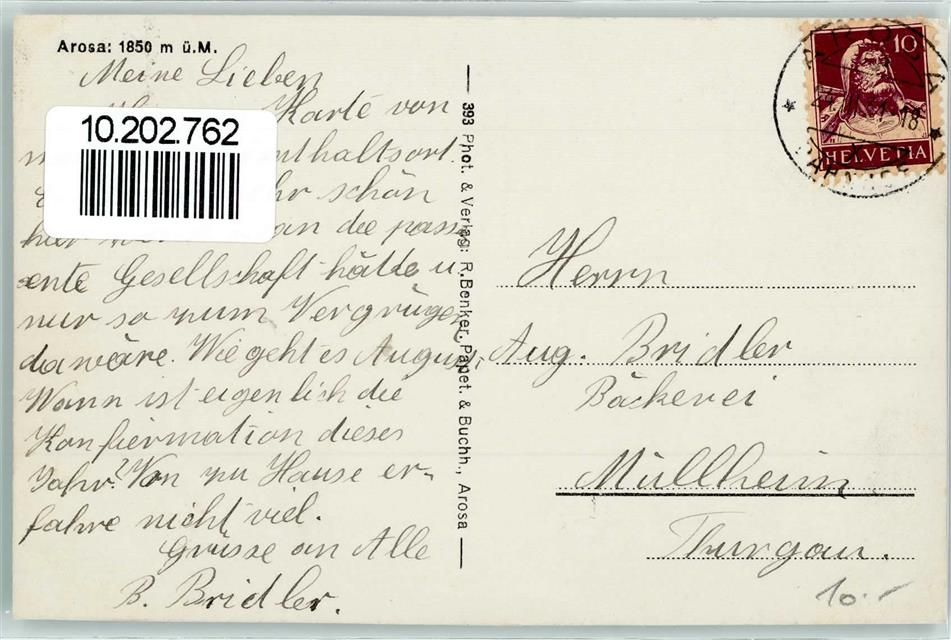 Arosa: 1850 m ü.M.
Meine Lieben
Karte von
nthaltsort.
hr schön
hier an die pass
ente Gesellschaft hätte u.
nur so zum Vergnügen
da wäre. Wie geht es August,
Wann ist eigenlich die
Konfiermation dieses
Jahr? Von zu Hause er-
fahre nicht viel.
Grüsse an Alle
B. Bridler.
10.202.762
393 Phot. & Verlag: R. Benker, Papet. & Buchh., Arosa
10
HELVETIA
Herrn
Aug. Bridler
Bäckerei
Müllheim
Thurgau.
10.-